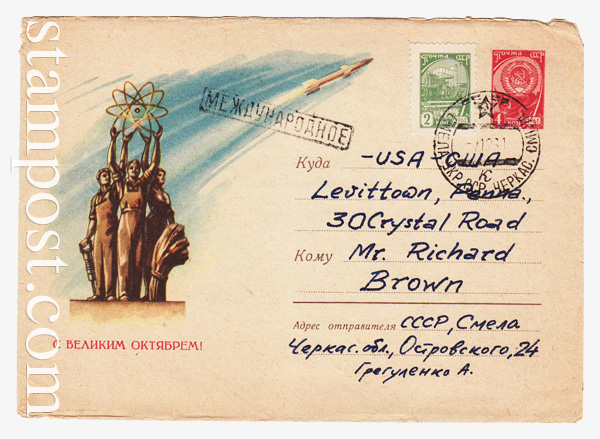 stampost.com
ПОЧТА СССР
2
ПОЧТА СССР
4
КОП
МЕЖДУНАРОДНОЕ
Куда -USA-США-
Levittown, Penna.,
30 Crystal Road
Кому Mr. Richard
Brown
Адрес отправителя СССР, Смела
Черкас. обл., Островского, 24
Грегуленко А.
С ВЕЛИКИМ ОКТЯБРЕМ!